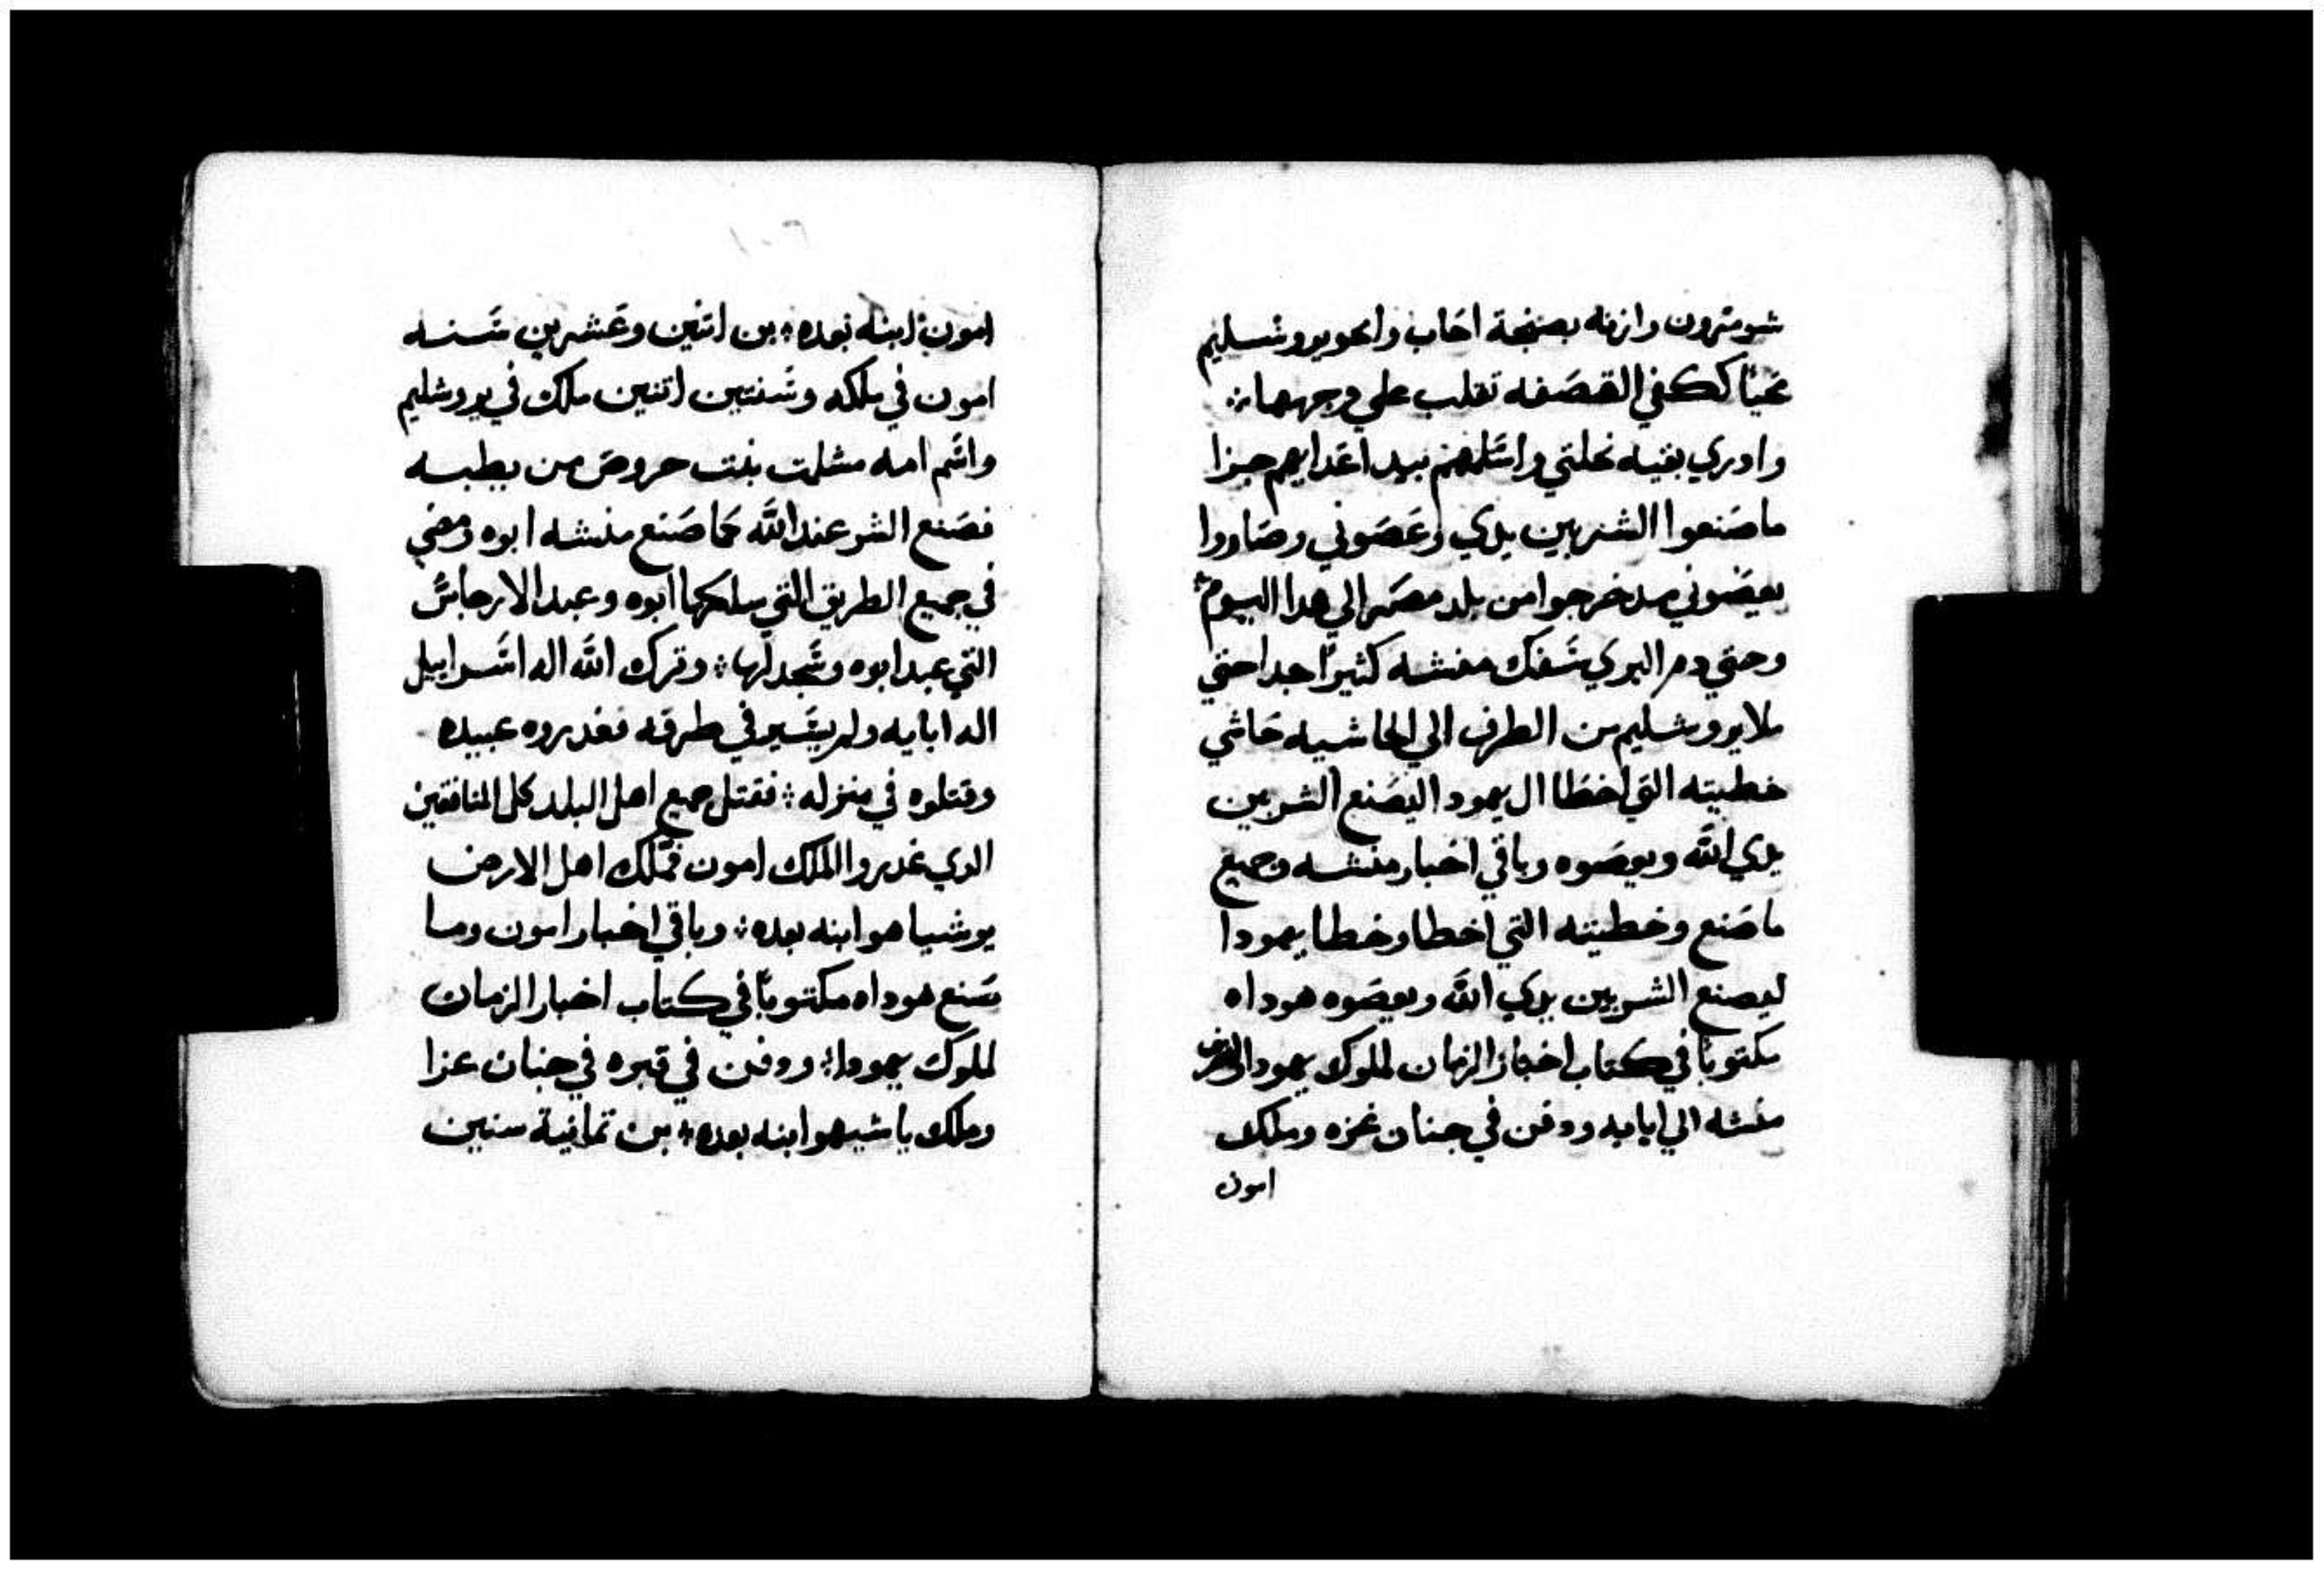 شومرون وازنه بصنجة اخاب وامحو يروشليم
محيا ككفي القصفه تقلب على وجهها
وادري بقيه نحلتي واسلمهم بيد اعدايهم جزا
ما صنعوا الشر بين يدي وعصوني وصاروا
يعصوني مد خرجوا من بلد مصر الي هدا اليوم
وحتي دم البري سفك منشه كثيرا جدا حتي
ملا يروشليم من الطرف الي الحاشيه حاشي
خطيته التي اخطا ال يهودا ليصنع الشر بين
يدي الله ويعصوه وباقي اخبار منشه وجميع
ما صنع وخطيته التي اخطا وخطا يهودا
ليصنع الشر بين يدي الله ويعصوه هوداه
مكتوبا في كتاب اخبار الزمان لملوك يهودا
منشه الي ابايه ودفن في جنان عزه وملك
امون
امون ابنه بعده بن اتنين وعشرين سنه
امون في ملكه وسنتين اتنين ملك في يروشليم
واسم امه مشلمت بنت حروص من يطبه
فصنع الشر عند الله كما صنع منشه ابوه ومضي
في جميع الطريق التي سلكها ابوه وعبد الارجاس
التي عبد ابوه وسجد لها وترك الله اله اسراييل
اله ابايه ولم يسير في طرقه فغدروه عبيده
وقتلوه في منزله فقتل جميع اهل البلد كل المنافقين
الدي غدروا الملك امون فملك اهل الارض
يوشيا هو ابنه بعده وباقي اخبار امون وما
صنع هوداه مكتوبا في كتاب اخبار الزمان
لملوك يهودا ودفن في قبره في جنان عزا
وملك ياشيهو ابنه بعده بن تمانية سنين